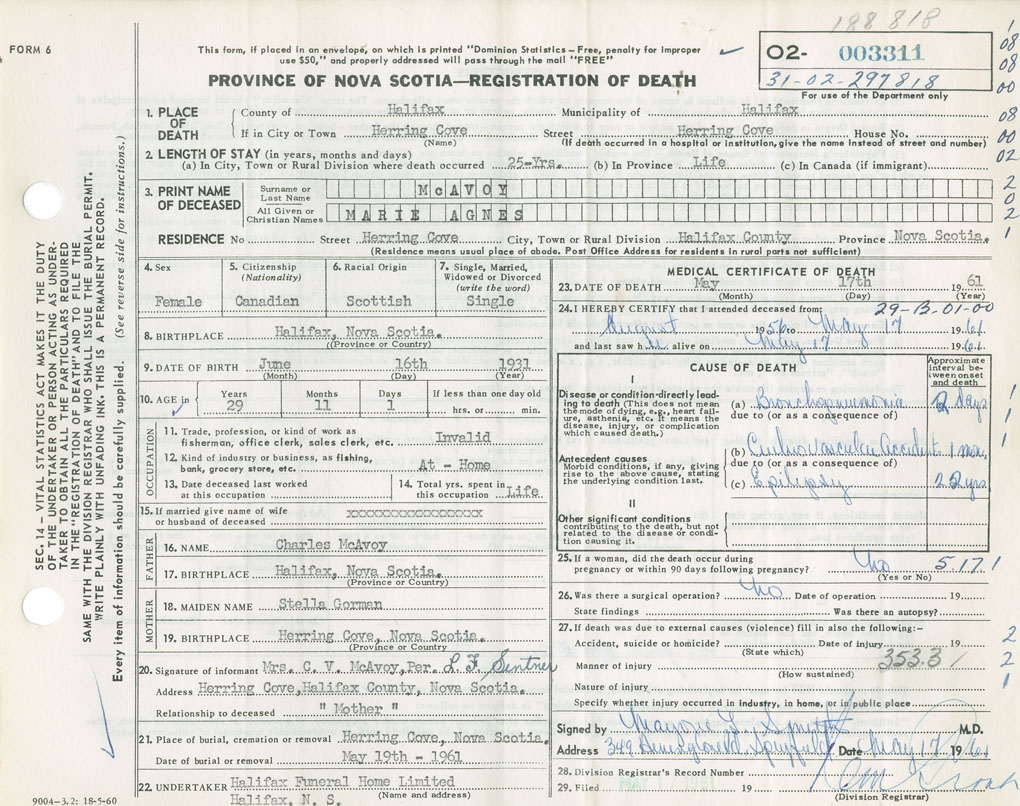 188 818
FORM 6
This form, if placed in an envelope, on which is printed "Dominion Statistics – Free, penalty for improper
use $50," and properly addressed will pass through the mail "FREE"
O2- 003311
31-02-297818
For use of the Department only
PROVINCE OF NOVA SCOTIA—REGISTRATION OF DEATH
1. PLACE OF DEATH
County of Halifax Municipality of Halifax
If in City or Town Herring Cove Street Herring Cove House No.
(Name) (If death occurred in a hospital or institution, give the name instead of street and number)
2. LENGTH OF STAY (in years, months and days)
(a) In City, Town or Rural Division where death occurred 25-Yrs. (b) In Province Life (c) In Canada (if immigrant)
3. PRINT NAME OF DECEASED
Surname or Last Name McAVOY
All Given or Christian Names MARIE AGNES
RESIDENCE No Street Herring Cove City, Town or Rural Division Halifax County Province Nova Scotia.
(Residence means usual place of abode. Post Office Address for residents in rural parts not sufficient)
4. Sex
Female
5. Citizenship
(Nationality)
Canadian
6. Racial Origin
Scottish
7. Single, Married,
Widowed or Divorced
(write the word)
Single
8. BIRTHPLACE Halifax, Nova Scotia.
(Province or Country)
9. DATE OF BIRTH June 16th 1931
(Month) (Day) (Year)
10. AGE in
Years Months Days If less than one day old
29 11 1 hrs. or min.
OCCUPATION
11. Trade, profession, or kind of work as
fisherman, office clerk, sales clerk, etc. Invalid
12. Kind of industry or business, as fishing,
bank, grocery store, etc. At - Home
13. Date deceased last worked
at this occupation
14. Total yrs. spent in
this occupation Life
15. If married give name of wife
or husband of deceased xxxxxxxxxxxxxxxxx
FATHER
16. NAME Charles McAvoy
17. BIRTHPLACE Halifax, Nova Scotia.
(Province or Country)
MOTHER
18. MAIDEN NAME Stella Gorman
19. BIRTHPLACE Herring Cove, Nova Scotia.
(Province or Country)
20. Signature of informant Mrs. C. V. McAvoy, Per. L. F. Sentner
Address Herring Cove, Halifax County, Nova Scotia.
Relationship to deceased " Mother "
21. Place of burial, cremation or removal Herring Cove, Nova Scotia.
Date of burial or removal May 19th - 1961
22. UNDERTAKER Halifax Funeral Home Limited
(Name and address)
Halifax, N. S.
9004-3.2: 18-5-60
MEDICAL CERTIFICATE OF DEATH
23. DATE OF DEATH May 17th 19 61
(Month) (Day) (Year)
24. I HEREBY CERTIFY that I attended deceased from: 29-B-01-00
August 1956 to May 17 1961
and last saw h er alive on May 17 1961
CAUSE OF DEATH
Approximate interval between onset and death
I
Disease or condition directly leading to death (This does not mean
the mode of dying, e.g., heart failure, asthenia, etc. It means the
disease, injury, or complication
which caused death.)
(a) Bronchopneumonia 2 days
due to (or as a consequence of)
Antecedent causes
Morbid conditions, if any, giving
rise to the above cause, stating
the underlying condition last.
(b) Cerebrovascular accident 1 mon.
due to (or as a consequence of)
(c) Epilepsy 22 yrs.
II
Other significant conditions
contributing to the death, but not
related to the disease or condition causing it.
25. If a woman, did the death occur during
pregnancy or within 90 days following pregnancy? No 5-17-1
(Yes or No)
26. Was there a surgical operation? No Date of operation 19
State findings Was there an autopsy?
27. If death was due to external causes (violence) fill in also the following:-
Accident, suicide or homicide? Date of injury 19
(State which)
353.3
Manner of injury
(How sustained)
Nature of injury
Specify whether injury occurred in industry, in home, or in public place
Signed by M.D.
Address 349 Date May 17 1961
28. Division Registrar's Record Number
29. Filed 19
(Division Registrar)
SEC. 14 – VITAL STATISTICS ACT MAKES IT THE DUTY
OF THE UNDERTAKER OR PERSON ACTING AS UNDERTAKER TO OBTAIN ALL THE PARTICULARS REQUIRED
IN THE "REGISTRATION OF DEATH" AND TO FILE THE
SAME WITH THE DIVISION REGISTRAR WHO SHALL ISSUE THE BURIAL PERMIT.
WRITE PLAINLY WITH UNFADING INK. THIS IS A PERMANENT RECORD.
Every item of information should be carefully supplied. (See reverse side for instructions.)
1
08
08
00
08
00
02
2
0
2
1
1
1
1
2
2
1